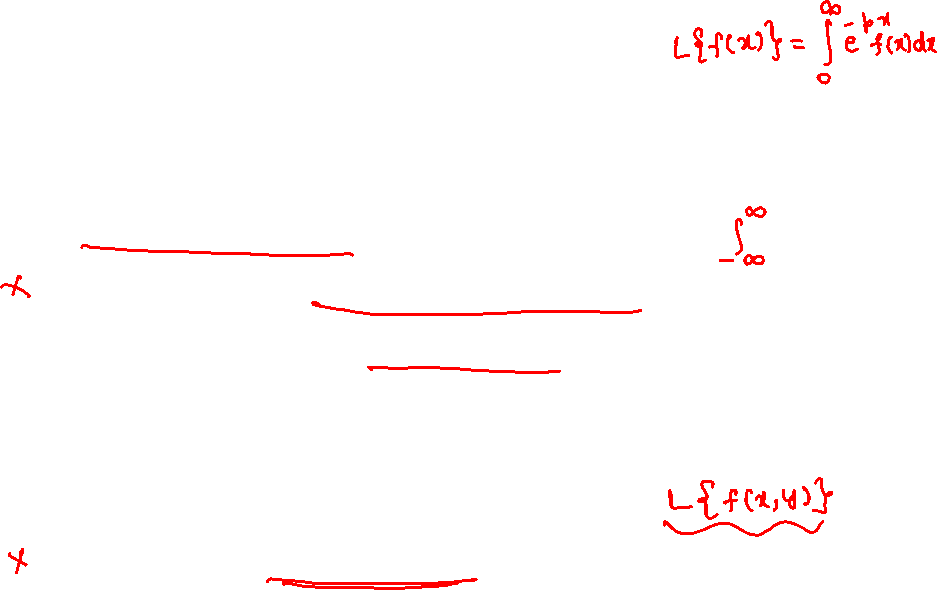 L{f(x)} = ∫₀^∞ e^{-px} f(x)dx
∫_{-∞}^{∞}
x
L{f(x,y)}
x